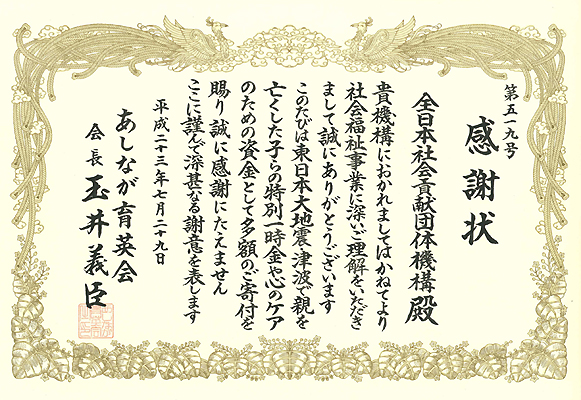 第五一九号
感謝状
全日本社会貢献団体機構 殿
貴機構におかれましてはかねてより
社会福祉事業に深いご理解をいただき
まして誠にありがとうございます
このたびは東日本大地震・津波で親を
亡くした子らの特別一時金や心のケア
のための資金として多額のご寄付を
賜り誠に感謝にたえません
ここに謹んで深甚なる謝意を表します
平成二十三年七月二十九日
あしなが育英会
会長 玉井義臣